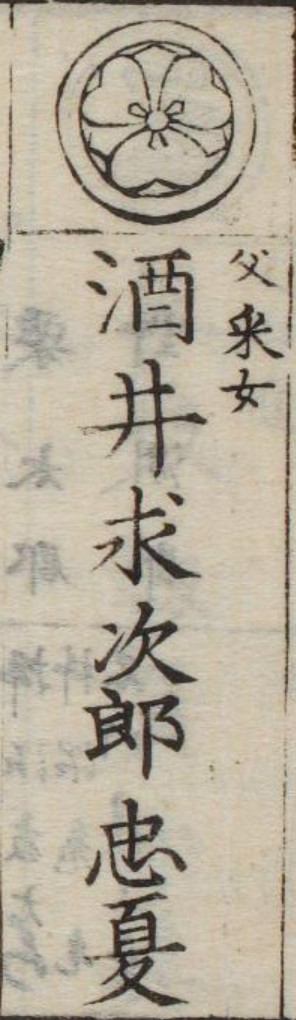 父采女
酒井求次郎忠夏